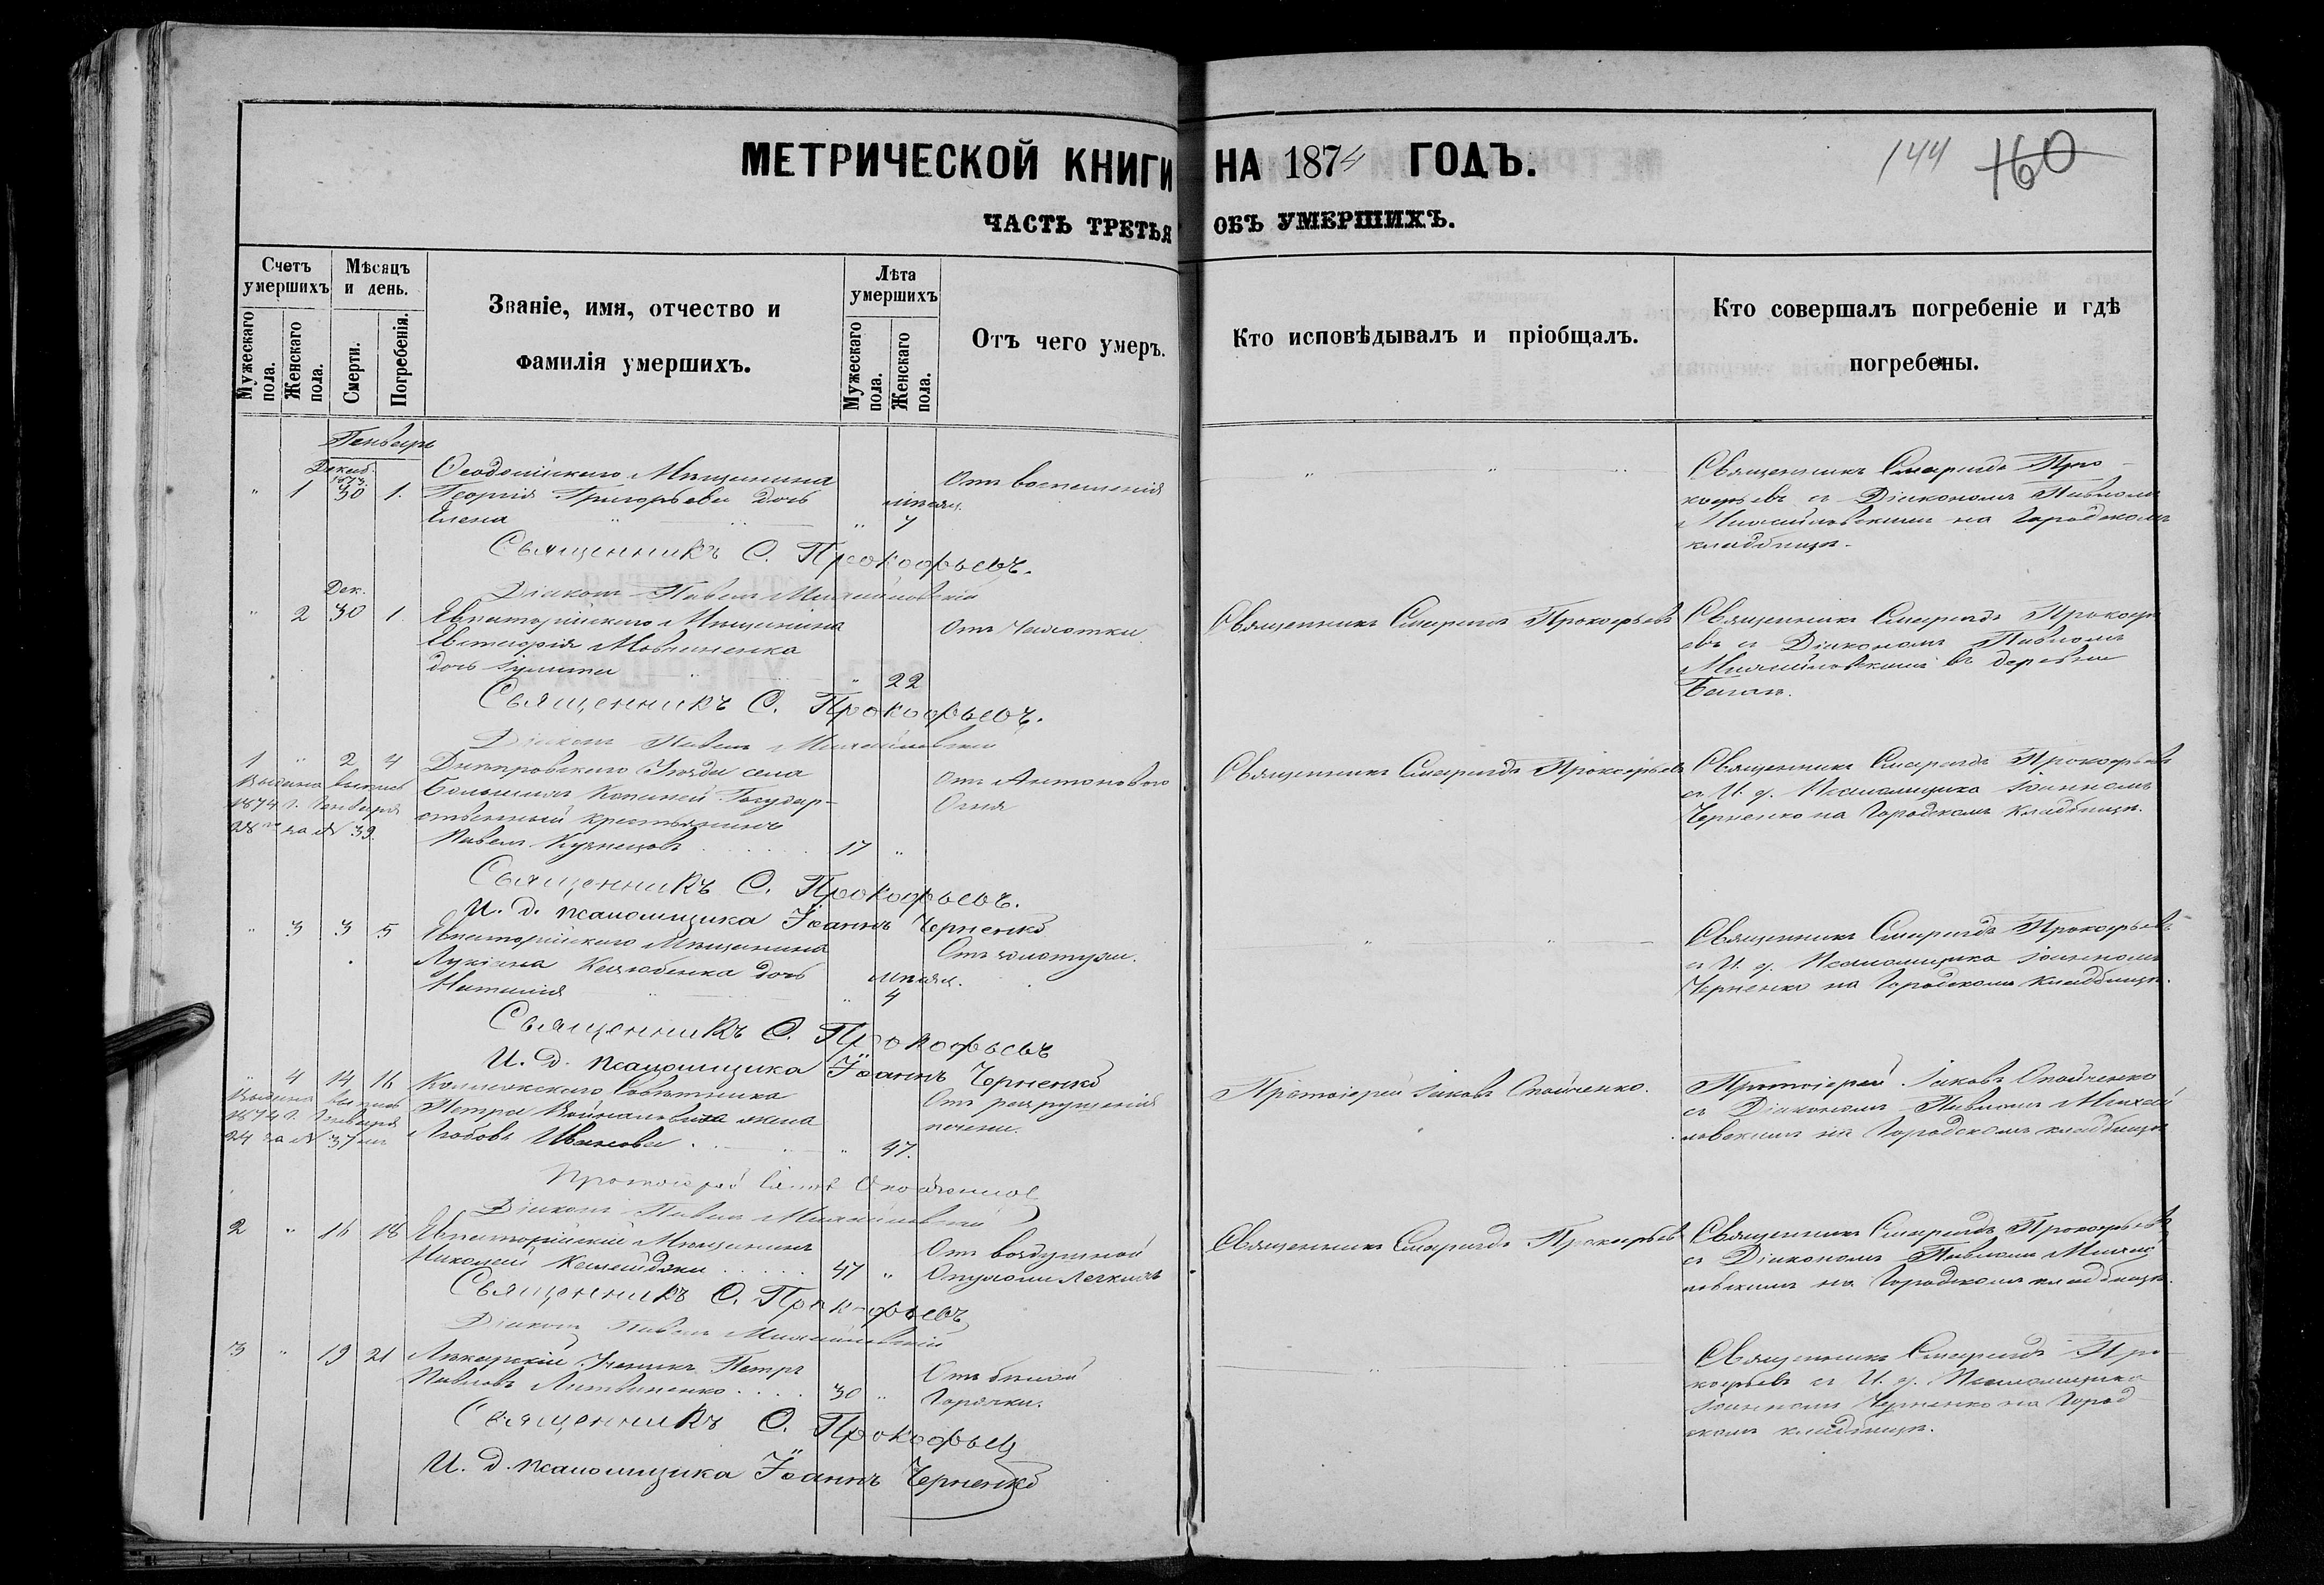 МЕТРИЧЕСКОЙ КНИГИ НА 1874 ГОДЪ.
144 160
ЧАСТЬ ТРЕТЬЯ ОБЪ УМЕРШИХЪ.
Счетъ умершихъ
Мужескаго пола.
Женскаго пола.
Мѣсяцъ и день.
Смерти.
Погребенія.
Званіе, имя, отчество и
фамилія умершихъ.
Лѣта умершихъ
Мужескаго пола.
Женскаго пола.
Отъ чего умеръ.
Кто исповѣдывалъ и пріобщалъ.
Кто совершалъ погребеніе и гдѣ
погребены.
Генварь
Декаб. 1873.
" 1 30 1.
Ѳеодосійскаго Мѣщанина
Георгія Григорьева дочь
Елена " мѣсяц. 7
Отъ воспаленія
Священникъ Смарагдъ Про-
кофьевъ съ Діакономъ Павломъ
Михайловскимъ на Городскомъ
кладбищѣ.
Священникъ С. Прокофьевъ.
Діаконъ Павелъ Михайловскій
Дек.
" 2 30 1.
Евпаторійскаго Мѣщанина
дочь 22
Отъ Чахотки
Священникъ Смарагдъ Прокофьевъ
Священникъ Смарагдъ Прокофь
евъ съ Діакономъ Павломъ
Михайловскимъ въ деревни
Священникъ С. Прокофьевъ.
Діаконъ Павелъ Михайловскій
1 " 2 4
Днѣпровскаго Уѣзда села
Большихъ Копаней Государ-
ственный крестьянинъ
Павелъ Кузнецовъ 17 "
Отъ Антонова
Огня
Выдана выпись
1874 г. Генваря
28 за № 39.
Священникъ Смарагдъ Прокофьевъ
Священникъ Смарагдъ Прокофьевъ
съ И. д. Псаломщика Іоанномъ
Черненко на Городскомъ Кладбищѣ.
Священникъ С. Прокофьевъ.
И. д. псаломщика Іоаннъ Черненко
" 3 3 5
Евпаторійскаго Мѣщанина
Лукіана дочь
Наталія " мѣсяц. 4
Отъ золотухи.
Священникъ Смарагдъ Прокофьевъ
съ И. д. Псаломщика Іоанномъ
Черненко на Городскомъ кладбищѣ.
Священникъ С. Прокофьевъ
И. д. псаломщика Іоаннъ Черненко
" 4 14 16
Коллежскаго Совѣтника
Петра жена
Любовь Иванова " 47.
Отъ разрушенія
печени.
Выдана выпись
1874 г. Генваря
24 за № 37
Протоіерей Іаковъ
Протоіерей Іаковъ
съ Діакономъ Павломъ Михай
ловскимъ на Городскомъ кладбищѣ
Протоіерей
Діаконъ Павелъ Михайловскій
2 " 16 18
Евпаторійскій Мѣщанинъ
Николай 47 "
Отъ воздушной
Опухоли Легкихъ
Священникъ Смарагдъ Прокофьевъ
Священникъ Смарагдъ Прокофьевъ
съ Діакономъ Павломъ Михай
ловскимъ на Городскомъ кладбищѣ.
Священникъ С. Прокофьевъ
Діаконъ Павелъ Михайловскій
3 " 19 21
Лекарскій Ученикъ Петръ
Павловъ Литвиненко 30 "
Отъ бѣлой
Горячки.
Священникъ Смарагдъ Про-
кофьевъ съ И. д. Псаломщика
Іоанномъ Черненко на Город
скомъ кладбищѣ.
Священникъ С. Прокофьевъ
И. д. псаломщика Іоаннъ Черненко